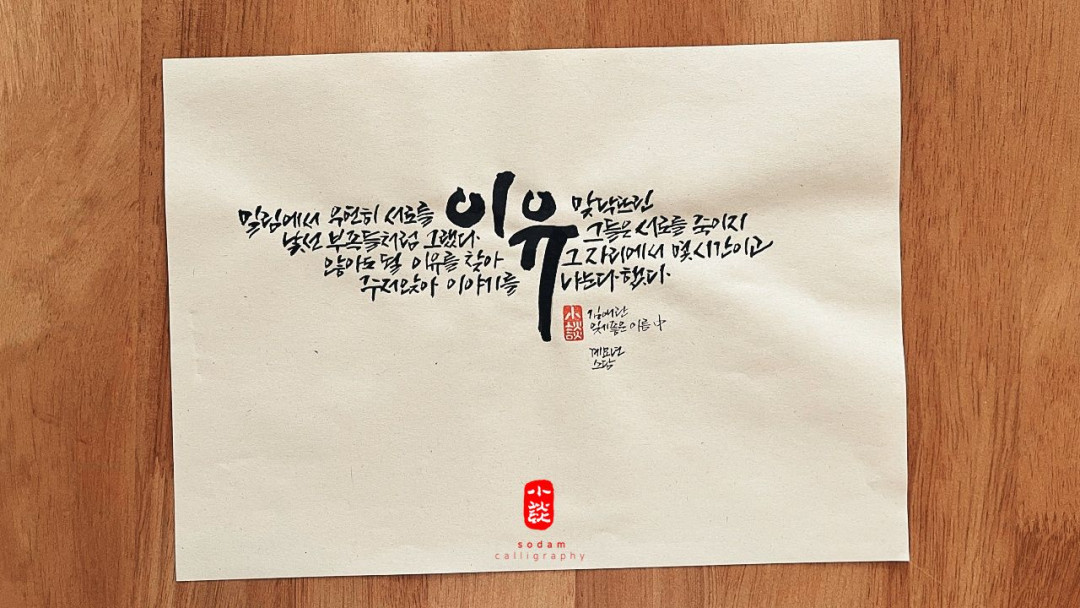 이유
밀림에서 우연히 서로를 맞닥뜨린
낯선 부족들처럼 그랬다. 그들은 서로를 죽이지
않아도 될 이유를 찾아 그 자리에서 몇시간이고
주저앉아 이야기를 나눈다 했다.
小談
김애란
잊기좋은 이름 中
계묘년
소담
小談
sodam
calligraphy